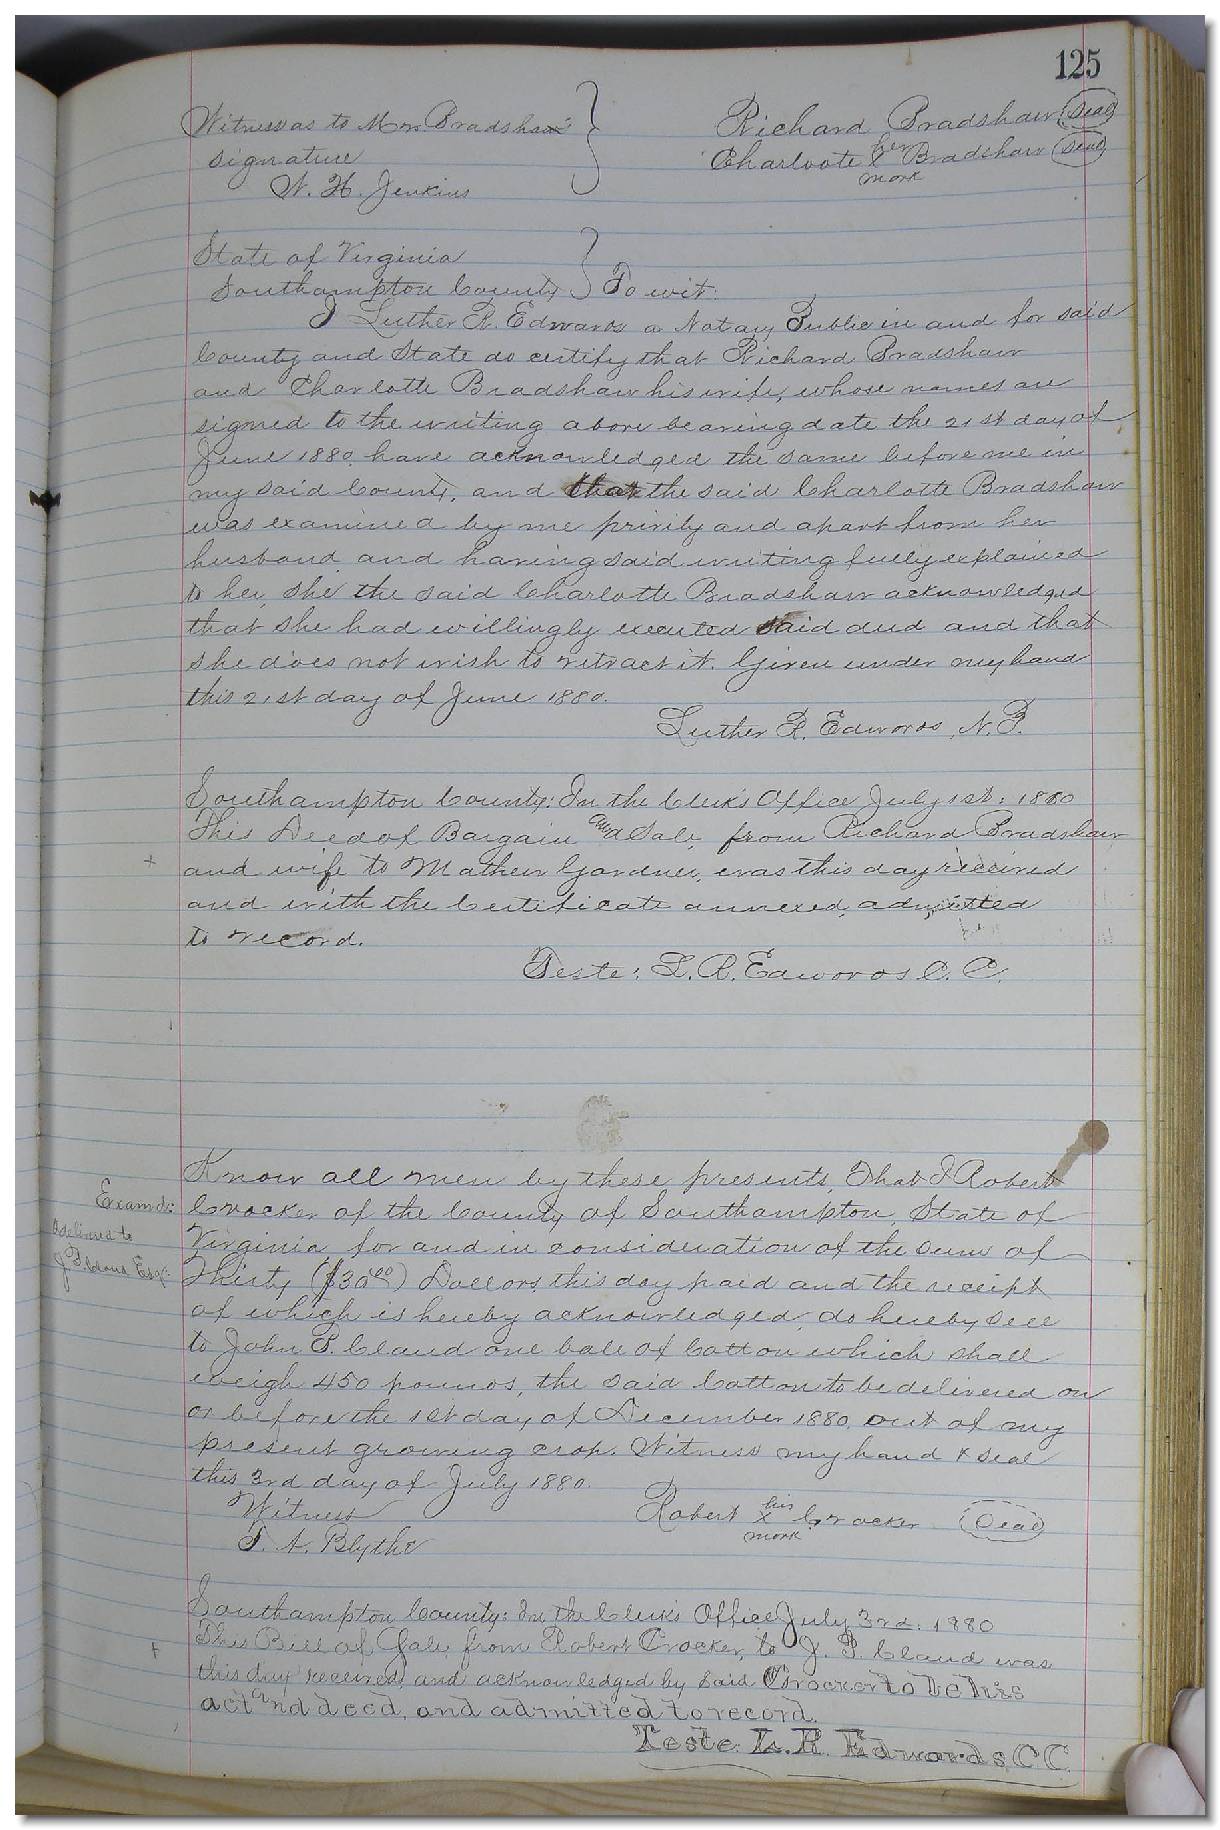 125
Witness as to Mrs Bradshaw's } Richard Bradshaw (Seal)
signature Charloote her X Bradshaw (Seal)
mark
N. H. Jenkins
State of Virginia
Southampton County } To wit:
I Luther R. Edwards a Notay Public in and for said
County and State do certify that Richard Bradshaw
and Charlotte Bradshaw his wife, whose names are
signed to the writing above bearing date the 21st day of
June 1880. have acknowledged the same before me in
my said County, and that the said Charlotte Bradshaw
was examined by me privily and apart from her
husband and having said writing fully explained
to her, she the said Charlotte Bradshaw acknowledged
that she had willingly executed said deed and that
she does not wish to retract it. Given under my hand
this 21st day of June 1880.
Luther R. Edwards, N. P.
Southampton County: In the Clerk's Office July 1st: 1880
This Deed of Bargain and Sale, from Richard Bradshaw
and wife to Mathew Gardner, was this day received
and with the Certificate annexed, admitted
to record.
Teste: L. R. Edwards C. C.
Know all men by these presents, That I Robert
Examd: Crocker of the County of Southampton, State of
& delivered to Virginia, for and in consideration of the sum of
Esqr: Thirty ($30.00) Dollars, this day paid and the receipt
of which is hereby acknowledged, do hereby sell
to John P. Claud one bale of Cotton which shall
weigh 450 pounds, the said Cotton to be delivered on
or before the 1st day of December 1880, out of my
present growing crop. Witness my hand & seal
this 3rd day of July 1880.
Witness Robert his X Crocker (Seal)
mark
T. A. Blythe
Southampton County: In the Clerk's Office July 3rd: 1880
This Bill of Sale, from Robert Crocker, to J. P. Claud was
this day received, and acknowledged by said Crocker to be his
act and deed, and admitted to record.
Teste: L. R. Edwards, CC.